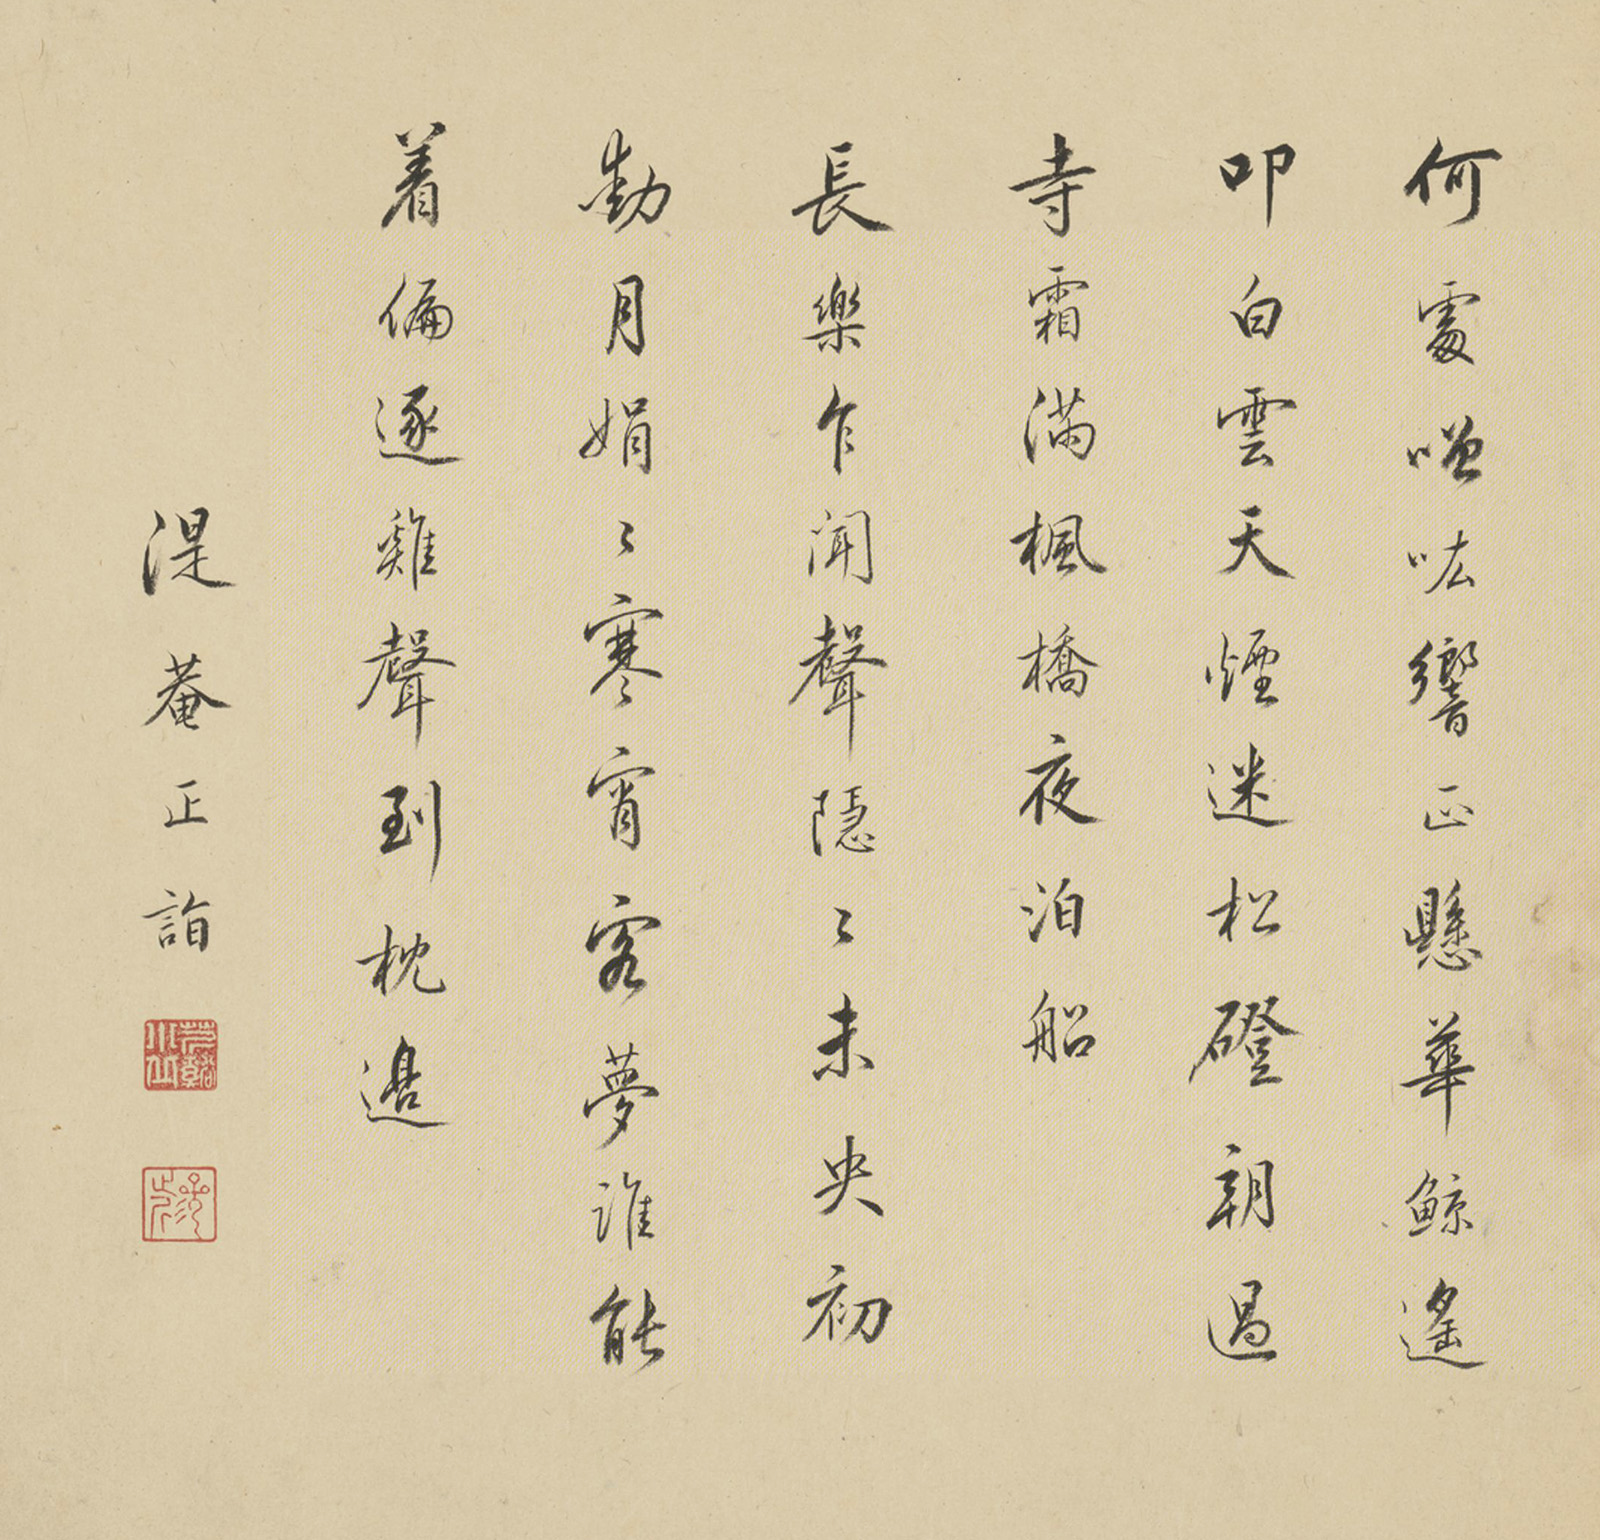 何處噌吰響正懸華鯨遙
叩白雲天煙迷松磴朝過
寺霜滿楓橋夜泊船
長樂乍聞聲隱〻未央初
動月娟〻寒宵客夢誰能
着偏逐雞聲到枕邊
湜菴正詣